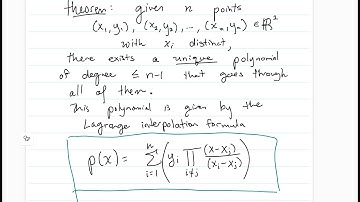 theorem: given n points
(x₁,y₁), (x₂,y₂), ..., (xₙ,yₙ) ∈ ℝ²
with xᵢ distinct,
there exists a unique polynomial
of degree ≤ n-1 that goes through
all of them.
This polynomial is given by the
Lagrange interpolation formula
p(x) = ∑ᵢ₌₁ⁿ (yᵢ ∏ᵢ≠ⱼ (x-xⱼ)/(xᵢ-xⱼ))